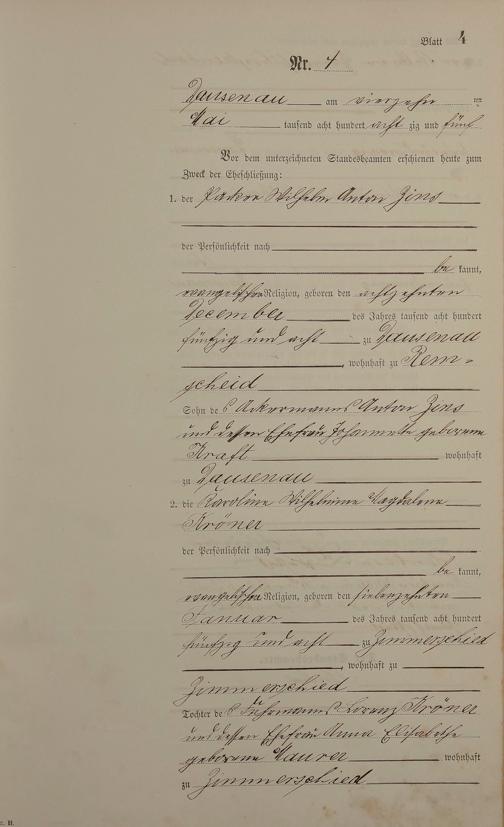 Blatt 4
Nr. 4
Dausenau am vierzehn ten
Mai tausend acht hundert acht zig und fünf
Vor dem unterzeichneten Standesbeamten erschienen heute zum
Zweck der Eheschließung:
1. der Packer Wilhelm Anton Zins
der Persönlichkeit nach
be kannt,
evangelischer Religion, geboren den achtzehnten
December des Jahres tausend acht hundert
fünfzig und acht zu Dausenau
, wohnhaft zu Rem-
scheid
Sohn des Ackermanns Anton Zins
und dessen Ehefrau Johannette geborene
Kraft wohnhaft
zu Dausenau
2. die Karoline Wilhelmine Magdalene
Kröner
der Persönlichkeit nach
be kannt,
evangelischer Religion, geboren den siebenzehnten
Januar des Jahres tausend acht hundert
fünfzig und acht zu Zimmerschied
, wohnhaft zu
Zimmerschied
Tochter des Fuhrmanns Lorenz Kröner
und dessen Ehefrau Anna Elisabethe
geborene Maurer wohnhaft
zu Zimmerschied
B.